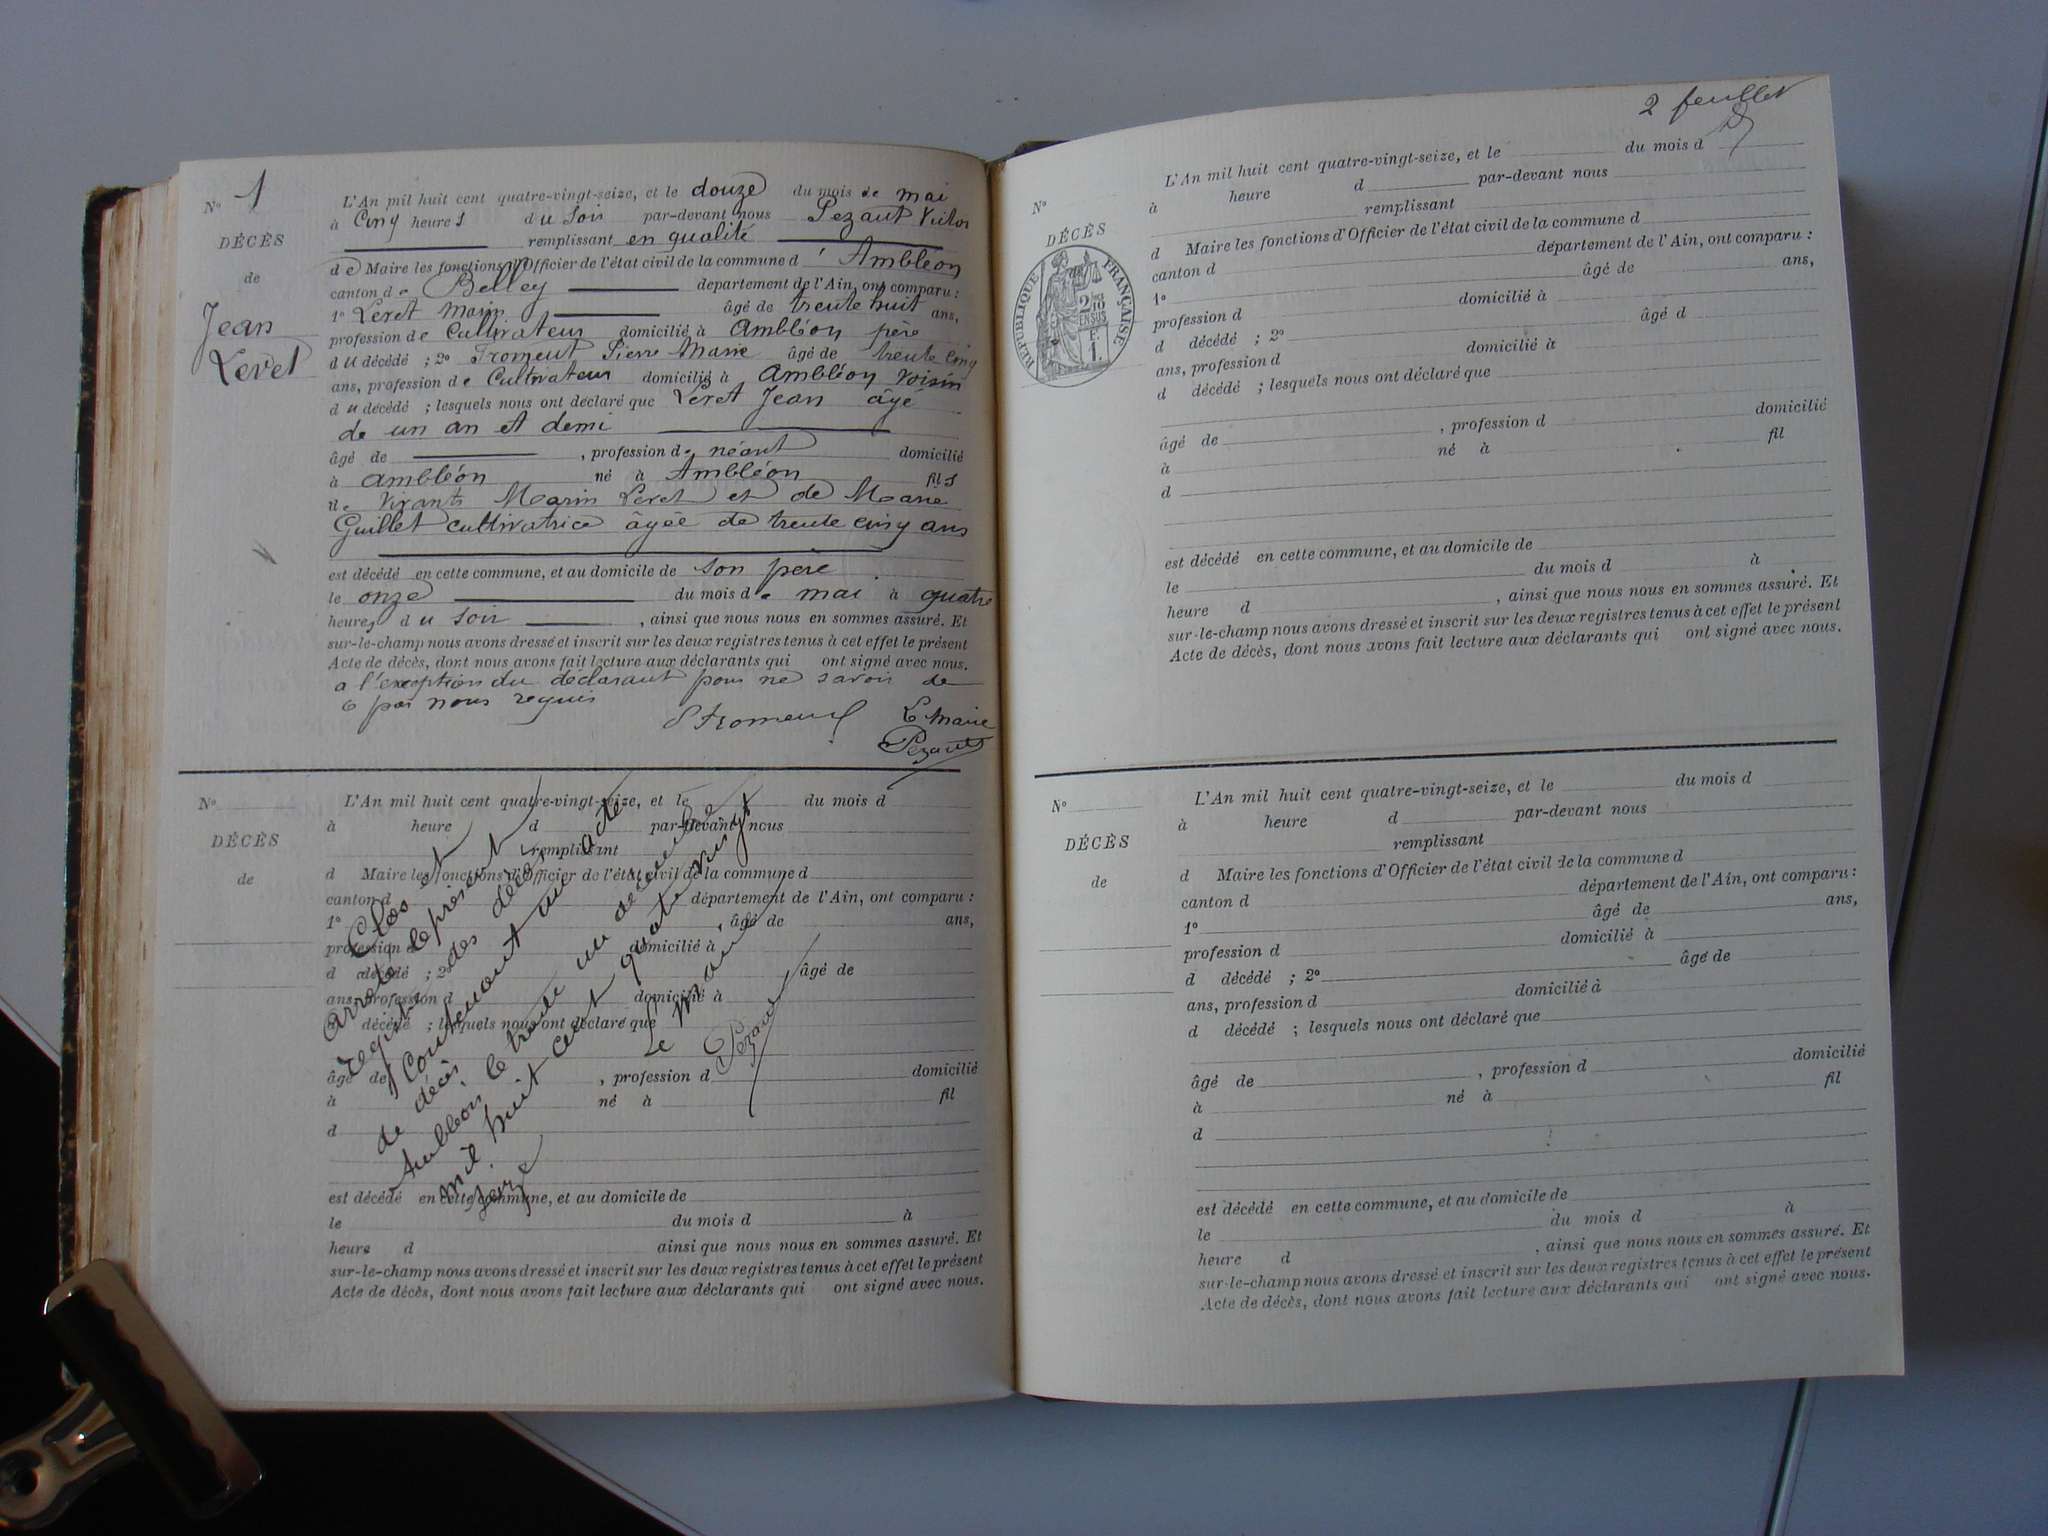 Nº 1
DÉCÈS
de
Jean
Levet
L'An mil huit cent quatre-vingt-seize, et le douze du mois de mai
à Cinq heures du soir par-devant nous Pezaut Victor
remplissant en qualité
de Maire les fonctions d'Officier de l'état civil de la commune d'Ambléon
canton de Belley département de l'Ain, ont comparu :
1º Levet Marin âgé de trente huit ans,
profession de Cultivateur domicilié à Ambléon père
du décédé ; 2º Froment Pierre Marie âgé de trente cinq
ans, profession de Cultivateur domicilié à Ambléon voisin
du décédé ; lesquels nous ont déclaré que Levet Jean âgé
de un an et demi
âgé de , profession de néant domicilié
à Ambléon né à Ambléon fils
de vivants Marin Levet et de Marie
Guillet cultivatrice âgée de trente cinq ans
est décédé en cette commune, et au domicile de son père
le onze du mois de mai à quatre
heures du soir , ainsi que nous nous en sommes assuré. Et
sur-le-champ nous avons dressé et inscrit sur les deux registres tenus à cet effet le présent
Acte de décès, dont nous avons fait lecture aux déclarants qui ont signé avec nous.
a l'exception du déclarant pour ne savoir de
ce par nous requis
Froment Le Maire
Pezaut
Nº
DÉCÈS
de
L'An mil huit cent quatre-vingt-seize, et le du mois d
à heure d par-devant nous
remplissant
d Maire les fonctions d'Officier de l'état civil de la commune d
canton d département de l'Ain, ont comparu :
1º , âgé de ans,
profession d domicilié à
d décédé ; 2º âgé de
ans, profession d domicilié à
d décédé ; lesquels nous ont déclaré que
âgé de , profession d domicilié
à né à fil
d
est décédé en cette commune, et au domicile de
le du mois d à
heure d ainsi que nous nous en sommes assuré. Et
sur-le-champ nous avons dressé et inscrit sur les deux registres tenus à cet effet le présent
Acte de décès, dont nous avons fait lecture aux déclarants qui ont signé avec nous.
Clos et
arrêté le présent
registre des décès
Contenant un acte
de décès
Ambléon le trente un décembre
mil huit cent quatre vingt
seize
Le Maire
Pezaut
2 feuillet
Nº
DÉCÈS
RÉPUBLIQUE FRANÇAISE
2/10
EN SUS
E.
1.
L'An mil huit cent quatre-vingt-seize, et le du mois d
à heure d par-devant nous
remplissant
d Maire les fonctions d'Officier de l'état civil de la commune d
canton d département de l'Ain, ont comparu :
1º âgé de ans,
profession d domicilié à
d décédé ; 2º âgé d
ans, profession d domicilié à
d décédé ; lesquels nous ont déclaré que
âgé de , profession d domicilié
à né à fil
d
est décédé en cette commune, et au domicile de
le du mois d à
heure d , ainsi que nous nous en sommes assuré. Et
sur-le-champ nous avons dressé et inscrit sur les deux registres tenus à cet effet le présent
Acte de décès, dont nous avons fait lecture aux déclarants qui ont signé avec nous.
Nº
DÉCÈS
de
L'An mil huit cent quatre-vingt-seize, et le du mois d
à heure d par-devant nous
remplissant
d Maire les fonctions d'Officier de l'état civil de la commune d
canton d département de l'Ain, ont comparu :
1º âgé de ans,
profession d domicilié à
d décédé ; 2º âgé de
ans, profession d domicilié à
d décédé ; lesquels nous ont déclaré que
âgé de , profession d domicilié
à né à fil
d
est décédé en cette commune, et au domicile de
le du mois d à
heure d , ainsi que nous nous en sommes assuré. Et
sur-le-champ nous avons dressé et inscrit sur les deux registres tenus à cet effet le présent
Acte de décès, dont nous avons fait lecture aux déclarants qui ont signé avec nous.